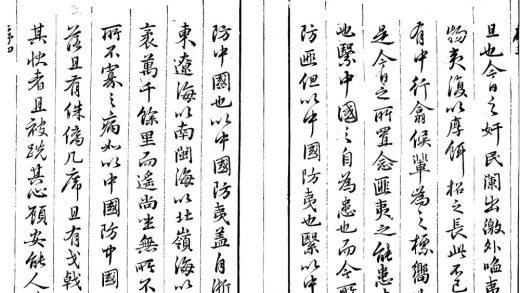 且也今日之奸民闌出徼外啗夷
物夷復以厚餌招之長此不已
有中行翕侯輩為之標嚮
是今日之所置念匪夷之能患
也繄中國之自為患也而今所
防匪但以中國防夷也繄以中
防中國也以中國防夷蓋自浙
東遼海以南閩海以北嶺海以
袤萬千餘里而遙尚坐無所不
所不寡之病如以中國防中國
落且有侏几席且有戈戟
其者且被其心顧安能人